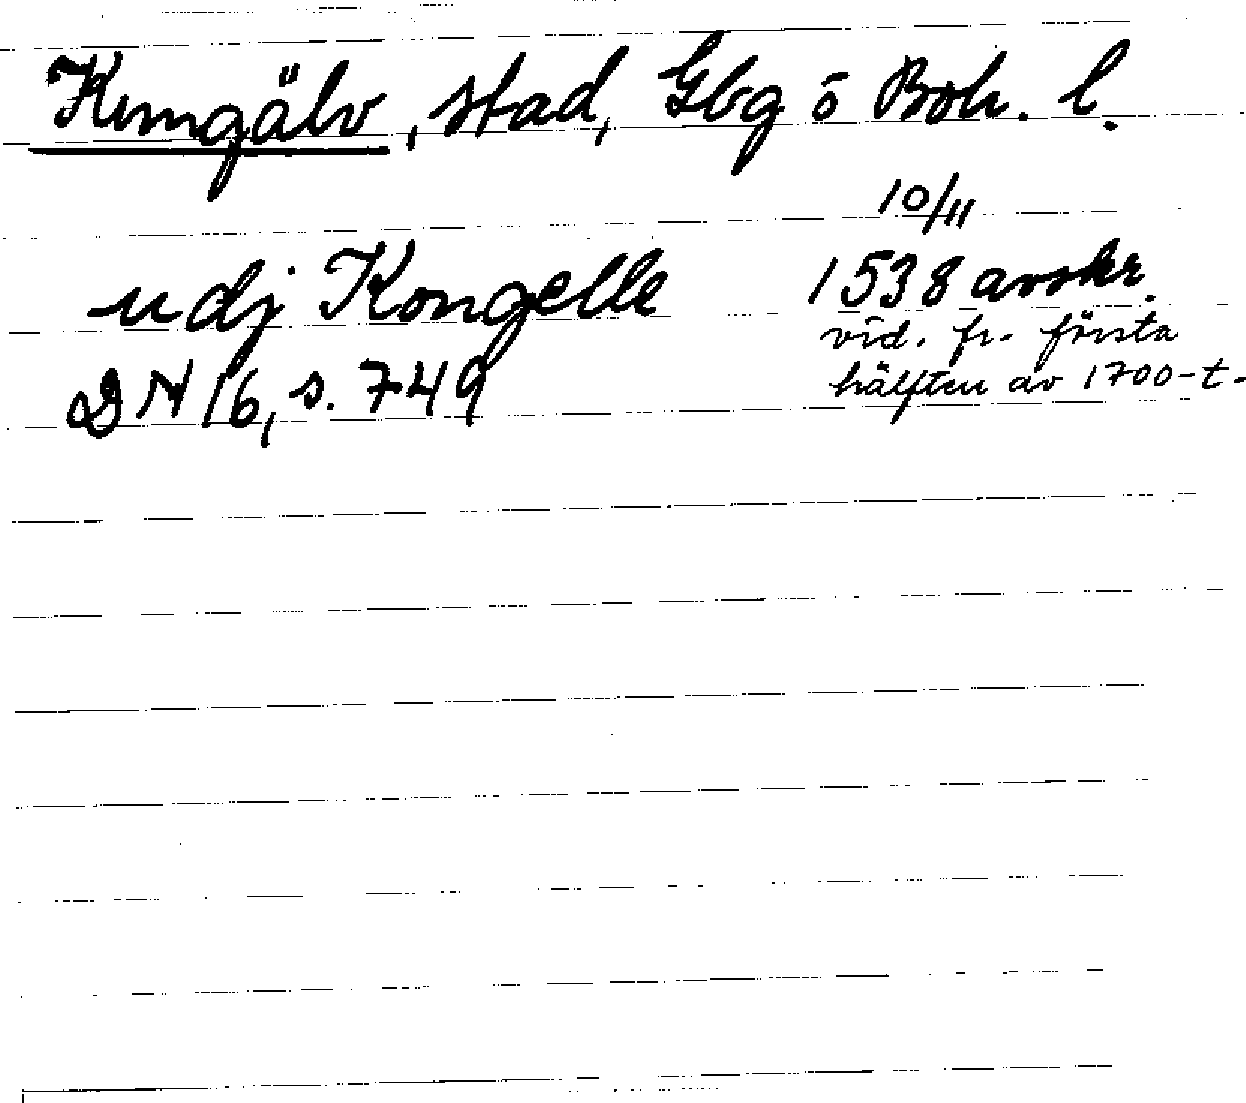 Kungälv, stad, Gbg o Boh. l.
10/11
udj Kongelle 1538 avskr.
vid. fr. första
DN 16, s. 749 hälften av 1700-t.